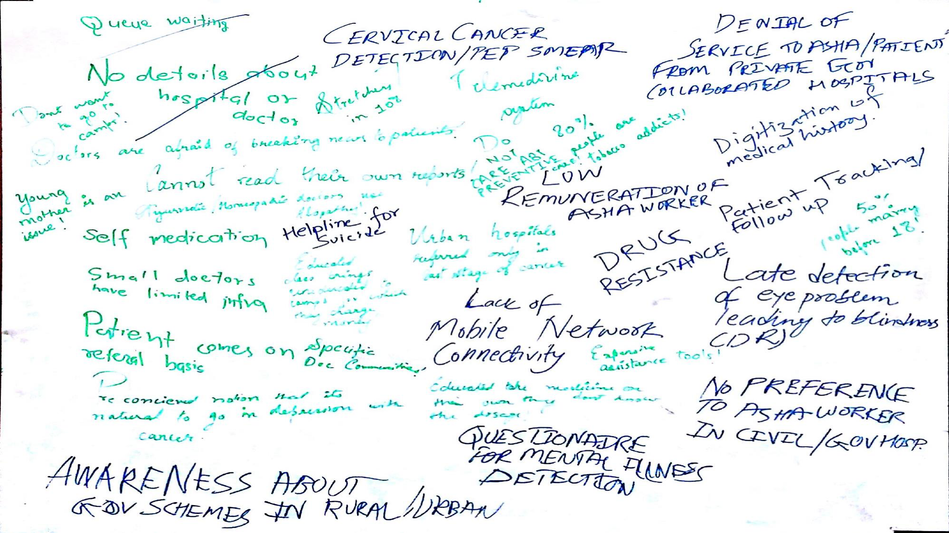 Queue waiting
CERVICAL CANCER
DETECTION/PEP SMEAR
DENIAL OF
SERVICE TO ASHA/PATIENT
FROM PRIVATE GOV
COLLABORATED HOSPITALS
No details about
hospital or
doctor
Stretcher
in 108
Telemedicine
system
Dont want
to go to
camps!
Digitization of
medical history.
Doctors are afraid of breaking news to patients.
Do
NOT
CARE ABT
PREVENTIVE
care!
20%
people are
tobacco addicts!
Cannot read their own reports/
LOW
REMUNERATION OF
ASHA WORKER
Young
mother is an
issue!
Ayurvedic, Homeopathic doctors use
Patient Tracking/
Follow up
50%
people marry
before 18!
Self medication
Helpline for
Suicide
Urban hospitals
referred only in
last stage of cancer
DRUG
RESISTANCE
Small doctors
have limited infra
Educated
Late detection
of eye problem
leading to blindness
(DR)
Lack of
Mobile Network
Connectivity
Patient comes on
referal basis
Specific
Doc Communities,
Expensive
assistance tools!
Pre concieved notion that its
natural to go in depression with
cancer.
Educated take medicine on
their own they dont know
the disease!
NO PREFERENCE
TO ASHA WORKER
IN CIVIL/GOV HOSP.
QUESTIONAIRE
FOR MENTAL ILLNESS
DETECTION
AWARENESS ABOUT
GOV SCHEMES IN RURAL/URBAN